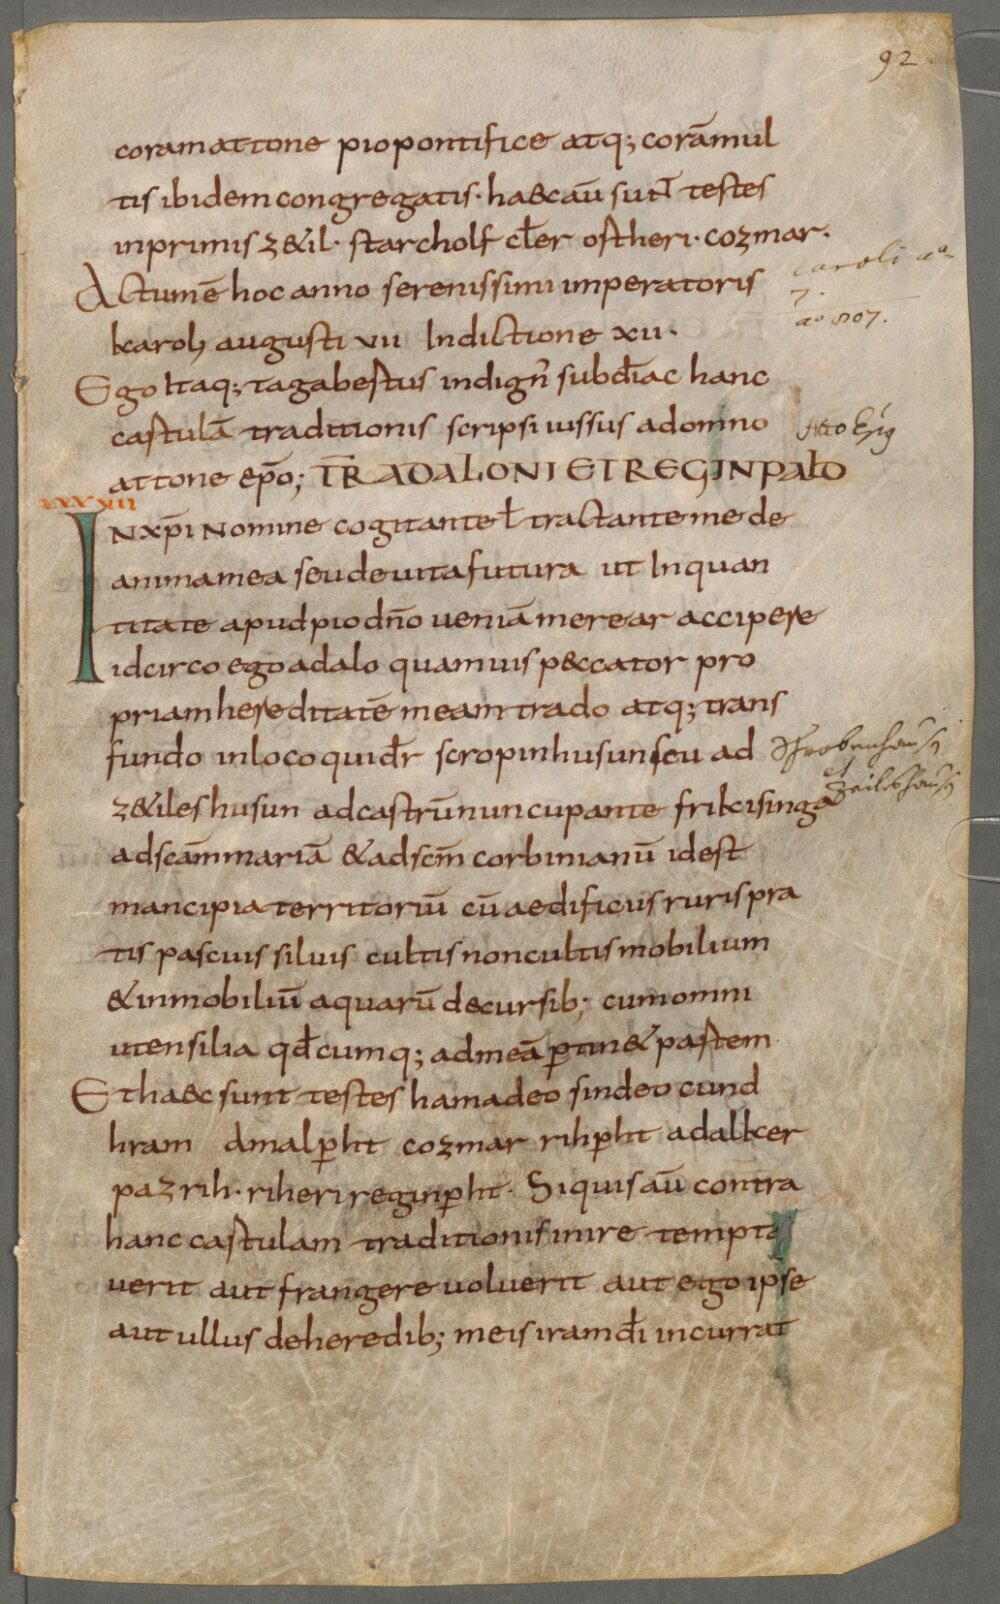 92.
coram attone pio pontifice atq; corā mul
tis ibidem congregatis · haec aū sunt testes
inprimis z&il · starcholf cłer ostheri · cozmar ·
Actum ē hoc anno serenissimi imperatoris
karoli augusti vii Indictione xii ·
caroli aº
7.
aº 807.
Ego Itaq; tagabertus indigñ subđiac hanc
castulā traditionis scripsi iussus a domno
attone ep̄o; TR̄ ADALONI ET REGINPALD
Atto Ep̄s
XXXVII
IN XP̄I Nomine cogitante ł tractante me de
anima mea seu de uita futura ut In quan
titate apud pio dño ueniā merear accipere
idcirco ego adalo quamuis peccator pro
priam hereditatē meam trado atq; trans
fundo in loco qui dr̄ scropinhusun seu ad
z&iles husun ad castrū nuncupante frikisinga
Schrobenhausn
et
Zeileshausn
ad scām mariā & ad scm̄ corbinianū id est
mancipia territoriū cū aedificiis ruris pra
tis pascuis siluis cultis non cultis mobilium
& inmobiliū aquarū decursib; cum omni
utensilia qđ cumq; ad meā p̄tin& pastem
Et haec sunt testes hamadeo sindeo cund
hram Amalp̄ht cozmar rihp̄ht adalker
pazrih · riheri reginp̄ht · Si quis aū contra
hanc castulam traditionis inire tempta
uerit aut frangere uoluerit aut ego ipse
aut ullus de heredib; meis iram đi incurrat